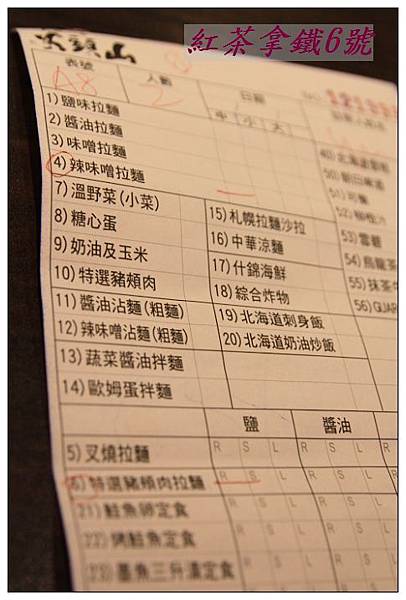 紅茶拿鐵6號
山頭火
表號 人數 日期
A8 2 中 小 大
1) 鹽味拉麵
2) 醬油拉麵
3) 味噌拉麵
4) 辣味噌拉麵
7) 溫野菜(小菜)
8) 糖心蛋
9) 奶油及玉米
10) 特選豬頰肉
11) 醬油沾麵(粗麵)
12) 辣味噌沾麵(粗麵)
13) 蔬菜醬油拌麵
14) 歐姆蛋拌麵
15) 札幌拉麵沙拉
16) 中華涼麵
17) 什錦海鮮
18) 綜合炸物
19) 北海道刺身飯
20) 北海道奶油炒飯
53) 雪碧
54) 烏龍茶
55) 抹茶
56) GUAR
鹽 醬油
5) 叉燒拉麵 R S L R S L
6) 特選豬頰肉拉麵 R S L R S L
21) 鮭魚卵定食 R S L R S L
22) 烤鮭魚定食 R S L R S L
23) 墨魚三升漬定食 R S L R S L